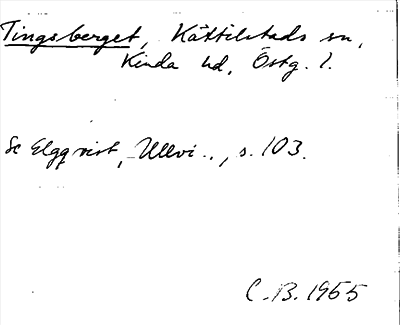 Tingsberget, Kättilstads sn,
Kinda hd, Östg. l.
Se Elgqvist, Ullvi.., s. 103.
C.B. 1955